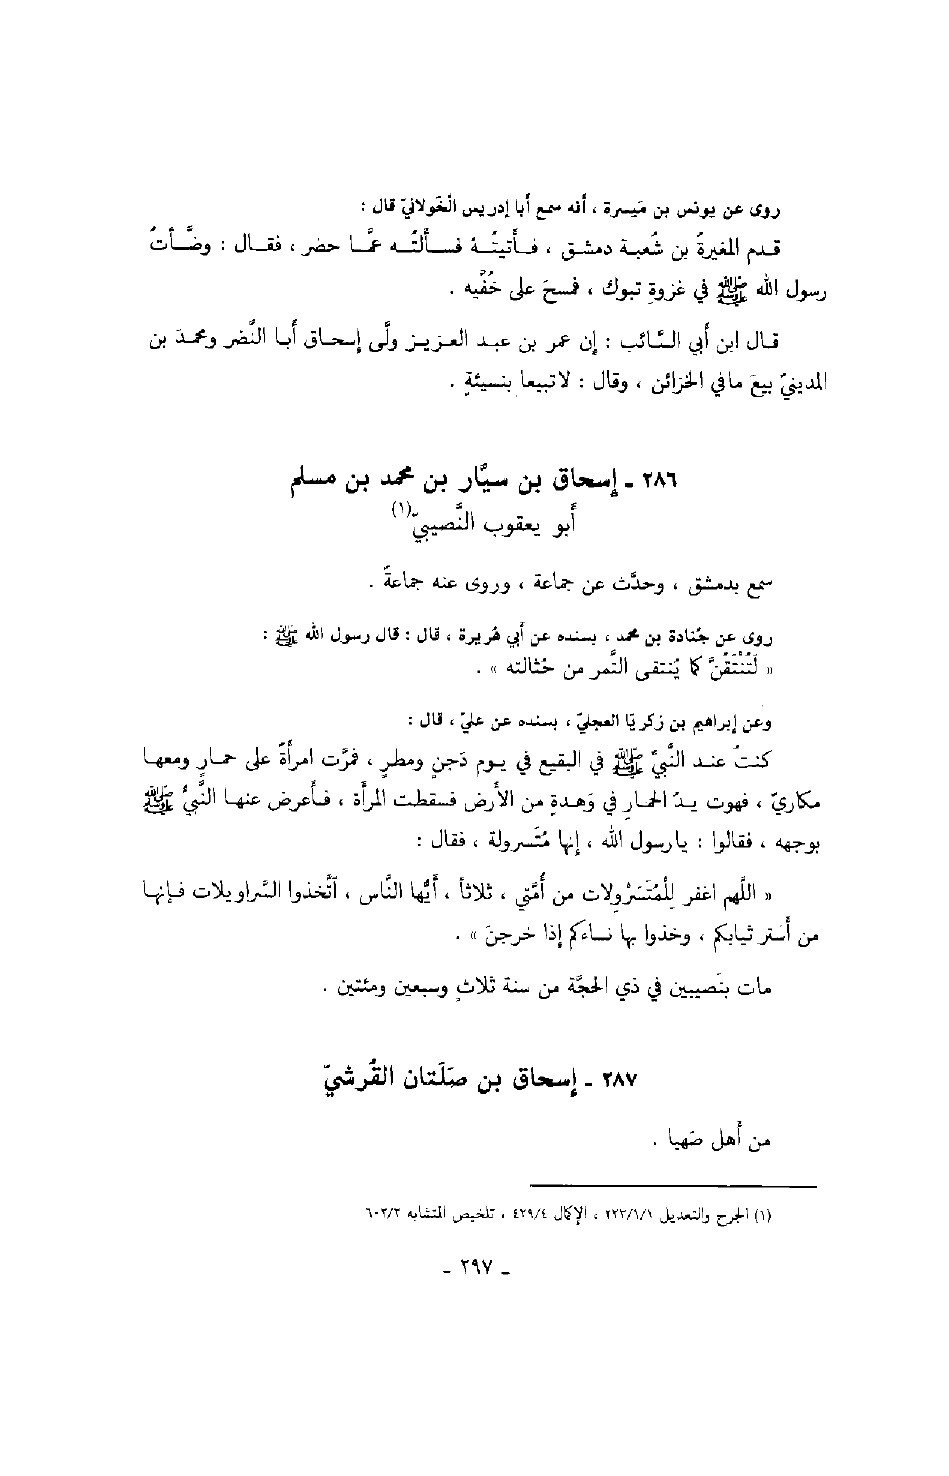 روى عن يونس بن مَيسرة ، أنه سمع أبا إدريس الخَولانيّ قال :
قدم المغيرةُ بن شُعبة دمشق ، فأتيتُهُ فسألتُه عمَّا حضر ، فقال : وضَّأتُ
رسول الله ﷺ في غزوةِ تبوك ، فمسحَ على خُفَّيه .
قال ابن أبي السَّائب : إن عمر بن عبد العزيز ولَّى إسحاق أبا النَّضر ومحمدَ بن
المدينيّ بيعَ مافي الخزائن ، وقال : لاتبيعا بنسيئةٍ .
٢٨٦ - إسحاق بن سيَّار بن محمد بن مسلم
أبو يعقوب النَّصيبيّ(١)
سمع بدمشق ، وحدَّث عن جماعة ، وروى عنه جماعةٌ .
روى عن جُنادة بن محمد ، بسنده عن أبي هُريرة ، قال : قال رسول الله ﷺ :
« لَتُنْتَقَنَّ كما يُنتقى التَّمر من حُثالته » .
وعن إبراهيم بن زكريّا العجليّ ، بسنده عن عليّ ، قال :
كنتُ عند النَّبيّ ﷺ في البقيع في يوم دَجنٍ ومطرٍ ، فمرَّت امرأةٌ على حمارٍ ومعها
مكاريّ ، فهوت يدُ الحمارِ في وَهدةٍ من الأرض فسقطت المرأة ، فأعرض عنها النَّبيُّ ﷺ
بوجهه ، فقالوا : يارسول الله ، إنها مُتَسرولة ، فقال :
« اللَّهم اغفر لِلْمُتَسَرْوِلات من أُمَّتي ، ثلاثاً ، أيُّها النَّاس ، اتَّخذوا السَّراويلات فإنها
من أستر ثيابكم ، وخذوا بها نساءكم إذا خرجنَ » .
مات بنَصيبين في ذي الحجَّة من سنة ثلاثٍ وسبعين ومئتين .
٢٨٧ - إسحاق بن صَلَتان القُرشيّ
من أهل صَهيا .
(١) الجرح والتعديل ٢٢٣/١/١ ، الإكمال ٤٢٩/٤ ، تلخيص المتشابه ٦٠٣/٢
- ٢٩٧ -